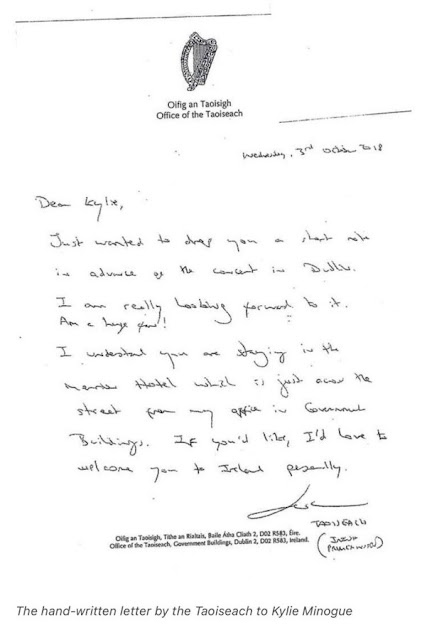 Oifig an Taoisigh
Office of the Taoiseach
Wednesday, 3rd October 2018
Dear Kylie,
Just wanted to drop you a short note
in advance of the concert in Dublin.
I am really looking forward to it.
Am a huge fan!
I understand you are staying in the
Merrion Hotel which is just across the
street from my office in Government
Buildings. If you'd like, I'd love to
welcome you to Ireland personally.
Leo
TAOISEACH
(IRISH
PRIME MINISTER)
Oifig an Taoisigh, Tithe an Rialtais, Baile Átha Cliath 2, D02 R583, Éire.
Office of the Taoiseach, Government Buildings, Dublin 2, D02 R583, Ireland.
The hand-written letter by the Taoiseach to Kylie Minogue